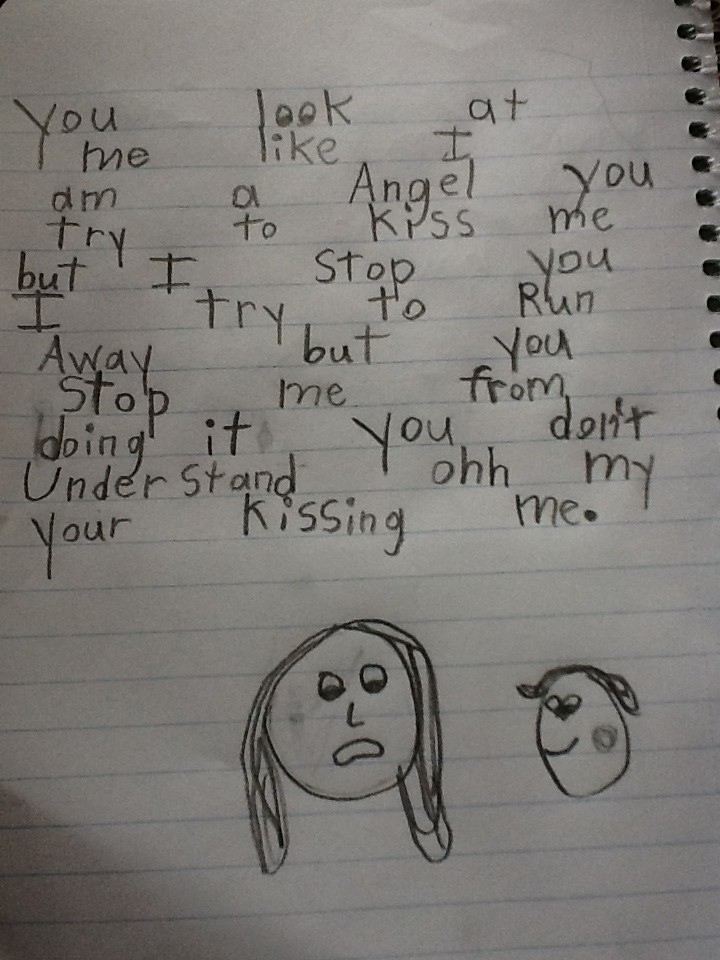 You look at
me like I
am a Angel you
try to Kiss me
but I Stop you
I try to Run
Away but you
Stop me from
doing it You don't
Understand ohh my
your kissing me.